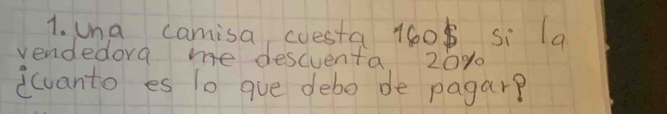 1. una camisa, cuesta 160$ si la
vendedora me descuenta 20%
¿cuanto es lo que debo de pagar?